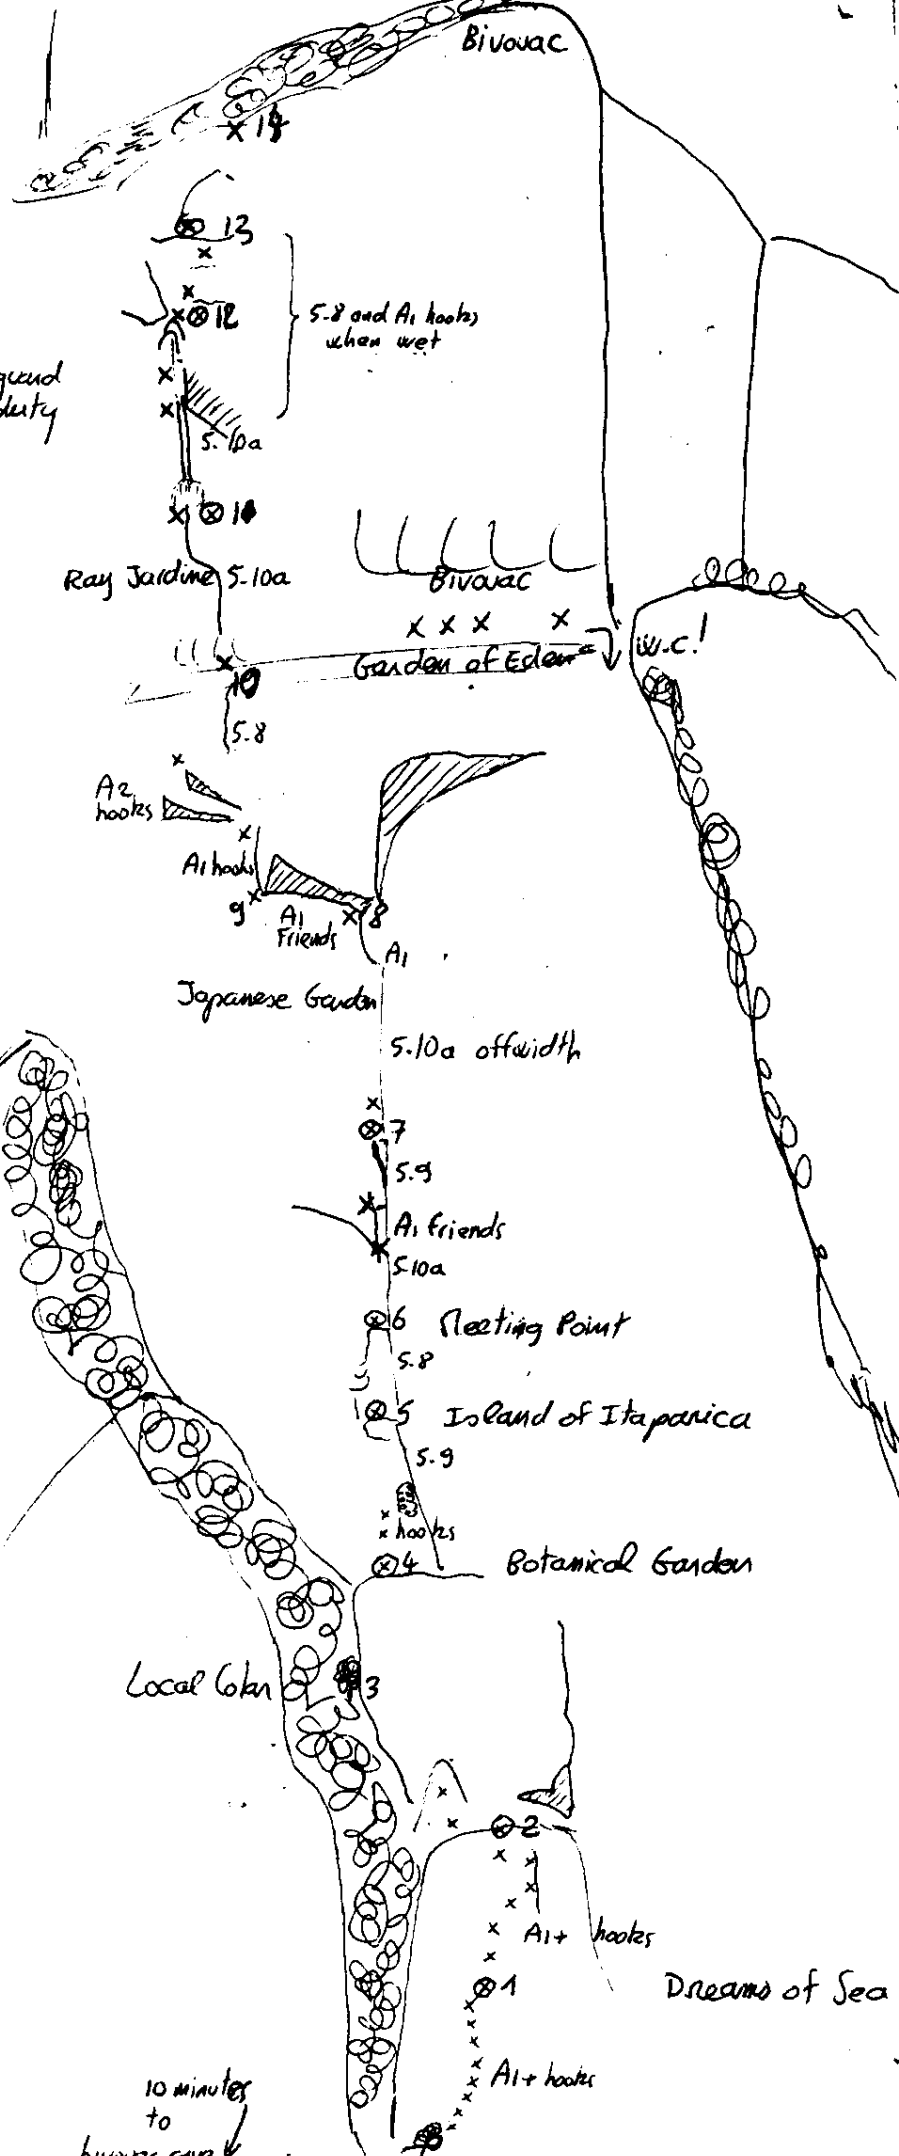 Bivouac
14
13
12
5.8 and A1 hooks
when wet
5.10a
11
Ray Jardine 5.10a
Bivouac
Garden of Eden
W.C!
10
5.8
A2
hooks
A1 hooks
9
A1
Friends
8
A1
Japanese Garden
5.10a offwidth
7
5.9
A1 friends
5.10a
6 Meeting Point
5.8
5 Island of Itaparica
5.9
hooks
4 Botanical Garden
Local Color
3
2
A1+ hooks
1
Dreams of Sea
A1+ hooks
10 minutes
to